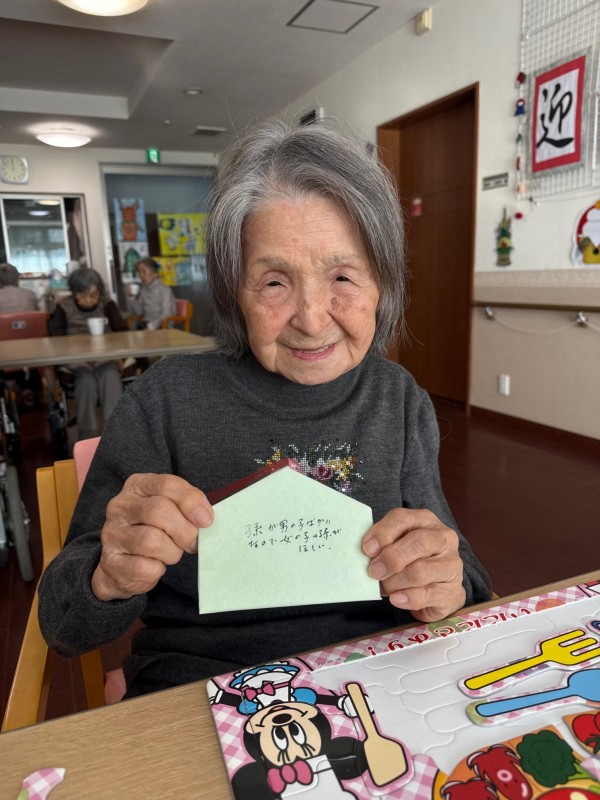 迎
孫が男の子ばかり
なので女の子の孫が
ほしい。